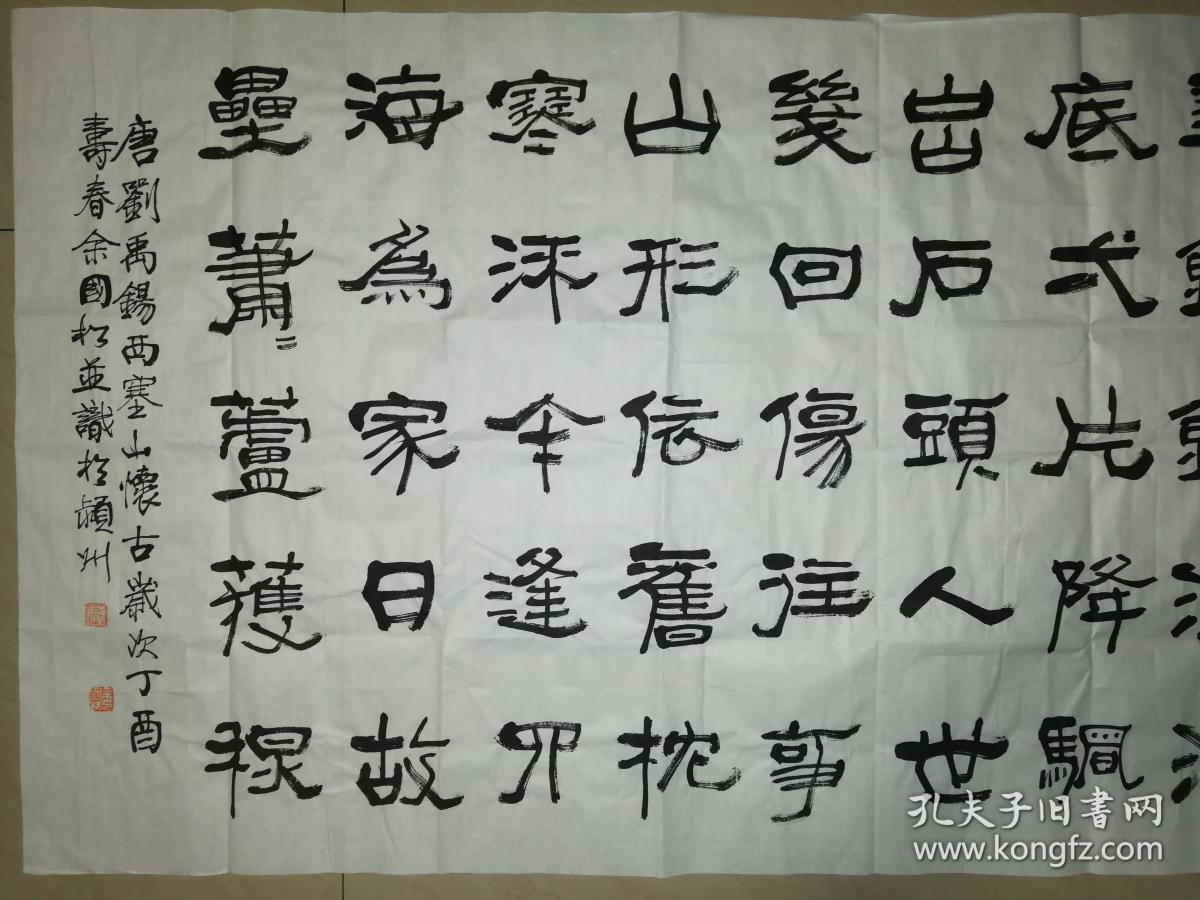 底弌片降
出石頭人世
幾回傷往事
山形依舊枕
寒流今逢四
海為家日故
壘蕭〻蘆獲秋
唐劉禹錫西塞山懷古歲次丁酉
壽春余國松並識於潁州
孔夫子旧书网
www.kongfz.com